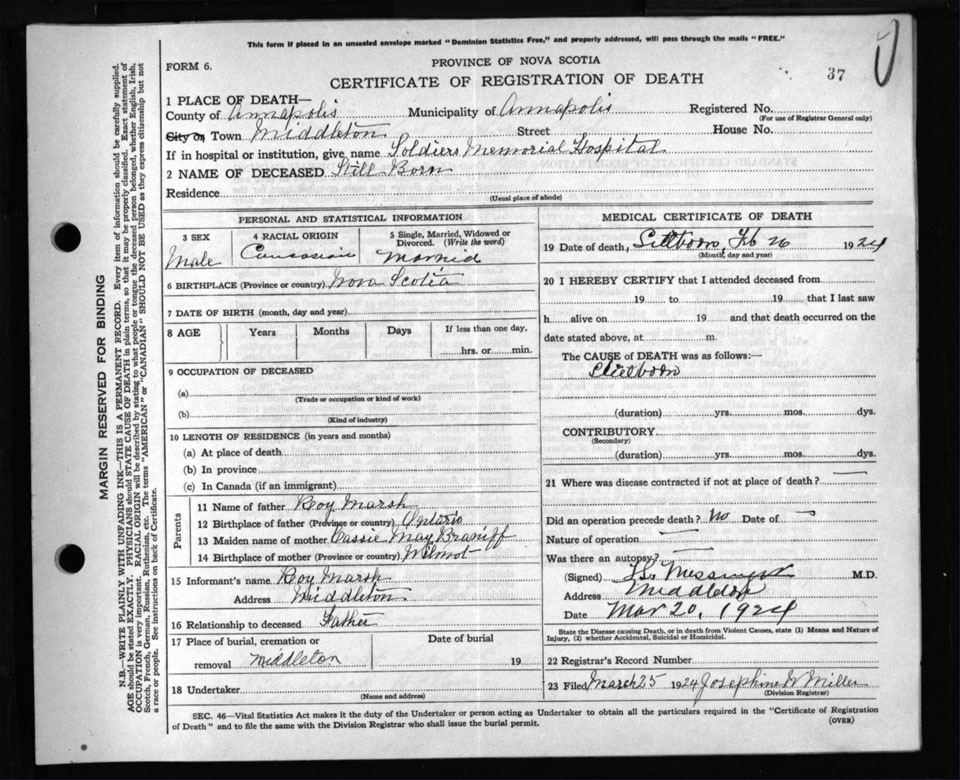 This form if placed in an unsealed envelope marked "Dominion Statistics Free," and properly addressed, will pass through the mails "FREE."
FORM 6.
PROVINCE OF NOVA SCOTIA
37
CERTIFICATE OF REGISTRATION OF DEATH
1 PLACE OF DEATH—
County of Annapolis Municipality of Annapolis Registered No.
(For use of Registrar General only)
City or Town Middleton Street House No.
If in hospital or institution, give name Soldiers Memorial Hospital
2 NAME OF DECEASED Still Born
Residence
(Usual place of abode)
PERSONAL AND STATISTICAL INFORMATION
3 SEX 4 RACIAL ORIGIN 5 Single, Married, Widowed or Divorced. (Write the word)
Male Caucasian Married
6 BIRTHPLACE (Province or country) Nova Scotia
7 DATE OF BIRTH (month, day and year)
8 AGE Years Months Days If less than one day,
hrs. or min.
9 OCCUPATION OF DECEASED
(a)
(Trade or occupation or kind of work)
(b)
(Kind of industry)
10 LENGTH OF RESIDENCE (in years and months)
(a) At place of death
(b) In province
(c) In Canada (if an immigrant)
Parents
11 Name of father Roy Marsh
12 Birthplace of father (Province or country) Ontario
13 Maiden name of mother Cassie May Braniff
14 Birthplace of mother (Province or country) Wilmot
15 Informant's name Roy Marsh
Address Middleton
16 Relationship to deceased Father
17 Place of burial, cremation or Date of burial
removal Middleton 19
18 Undertaker
(Name and address)
MEDICAL CERTIFICATE OF DEATH
19 Date of death, Stillborn, Feb 26 1924
(Month, day and year)
20 I HEREBY CERTIFY that I attended deceased from
19 to 19 that I last saw
h alive on 19 and that death occurred on the
date stated above, at m.
The CAUSE of DEATH was as follows:—
Stillborn
(duration) yrs. mos. dys.
CONTRIBUTORY
(Secondary)
(duration) yrs. mos. dys.
21 Where was disease contracted if not at place of death? —
Did an operation precede death? No Date of —
Nature of operation —
Was there an autopsy? —
(Signed) Messinger M.D.
Address Middleton
Date Mar 20, 1924
State the Disease causing Death, or in death from Violent Causes, state (1) Means and Nature of
Injury, (2) whether Accidental, Suicidal or Homicidal.
22 Registrar's Record Number
23 Filed March 25 1924 Josephine W Miller
(Division Registrar)
SEC. 46—Vital Statistics Act makes it the duty of the Undertaker or person acting as Undertaker to obtain all the particulars required in the "Certificate of Registration
of Death" and to file the same with the Division Registrar who shall issue the burial permit.
(OVER)
MARGIN RESERVED FOR BINDING
N.B.—WRITE PLAINLY WITH UNFADING INK—THIS IS A PERMANENT RECORD. Every item of information should be carefully supplied.
AGE should be stated EXACTLY. PHYSICIANS should STATE CAUSE OF DEATH in plain terms, so that it may be properly classified. Exact statement of
OCCUPATION is very important. RACIAL ORIGIN will be described by stating to what people or tongue the deceased person belonged, whether English, Irish,
Scotch, French, German, Russian, Ruthenian, etc. The terms "AMERICAN" or "CANADIAN" SHOULD NOT BE USED as they express citizenship but not
a race or people. See instructions on back of Certificate.